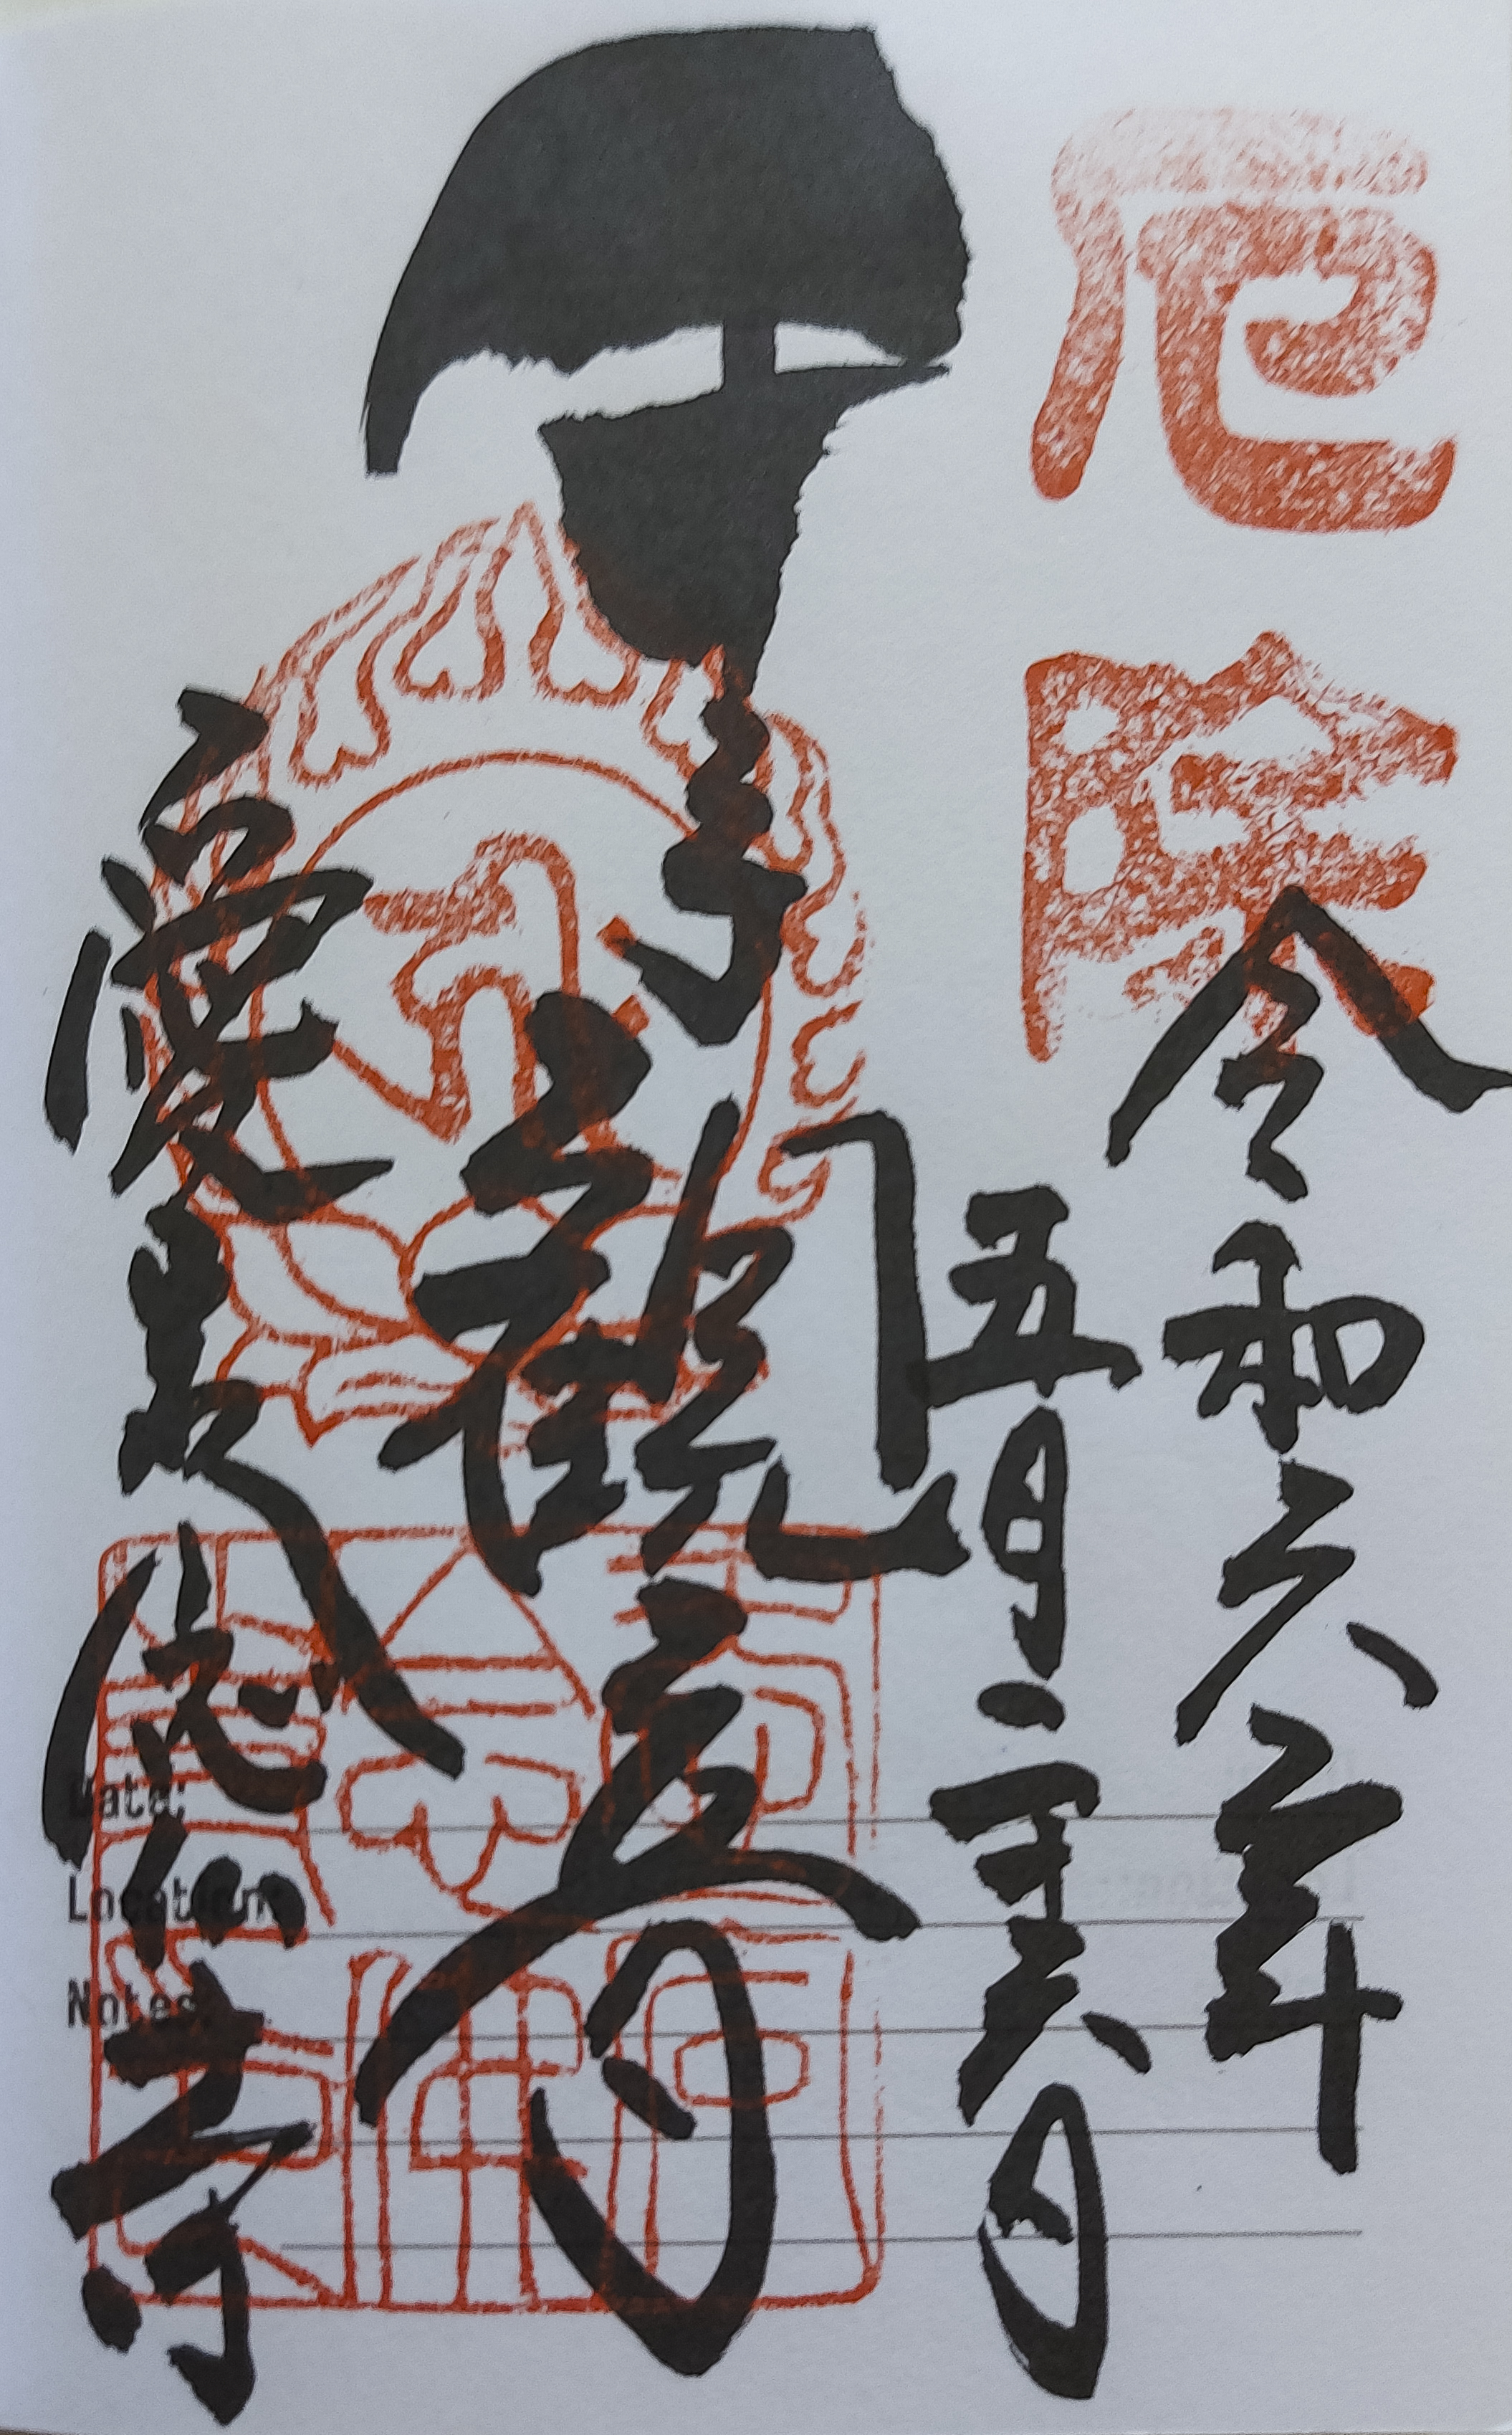 厄除
令和六年
五月二十六日
千手観音
愛宕念仏寺
Date:
Location:
Notes: